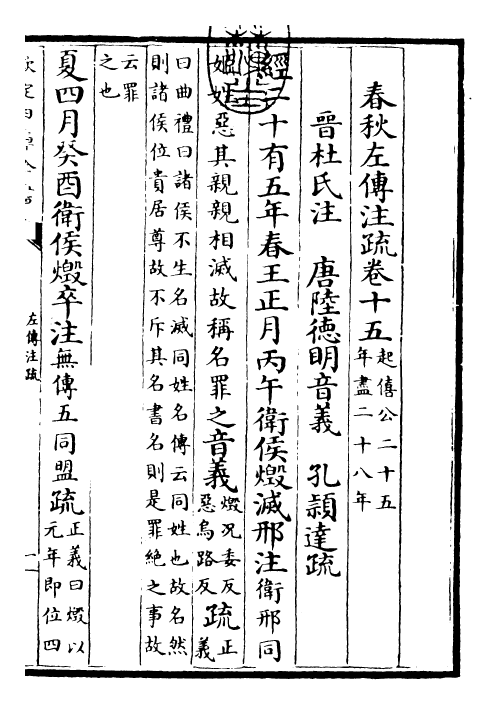 春秋左傳注疏卷十五起僖公二十五年盡二十八年
晉杜氏注 唐陸德明音義 孔穎達疏
經二十有五年春王正月丙午衛侯燬滅邢注衛邢同
姬姓惡其親親相滅故稱名罪之音義燬况委反惡烏路反疏正義
曰曲禮曰諸侯不生名滅同姓名傳云同姓也故名然
則諸侯位貴居尊故不斥其名書名則是罪絶之事故
云罪之也
夏四月癸酉衛侯燬卒注無傳五同盟疏正義曰燬以元年即位四
左傳注疏
一